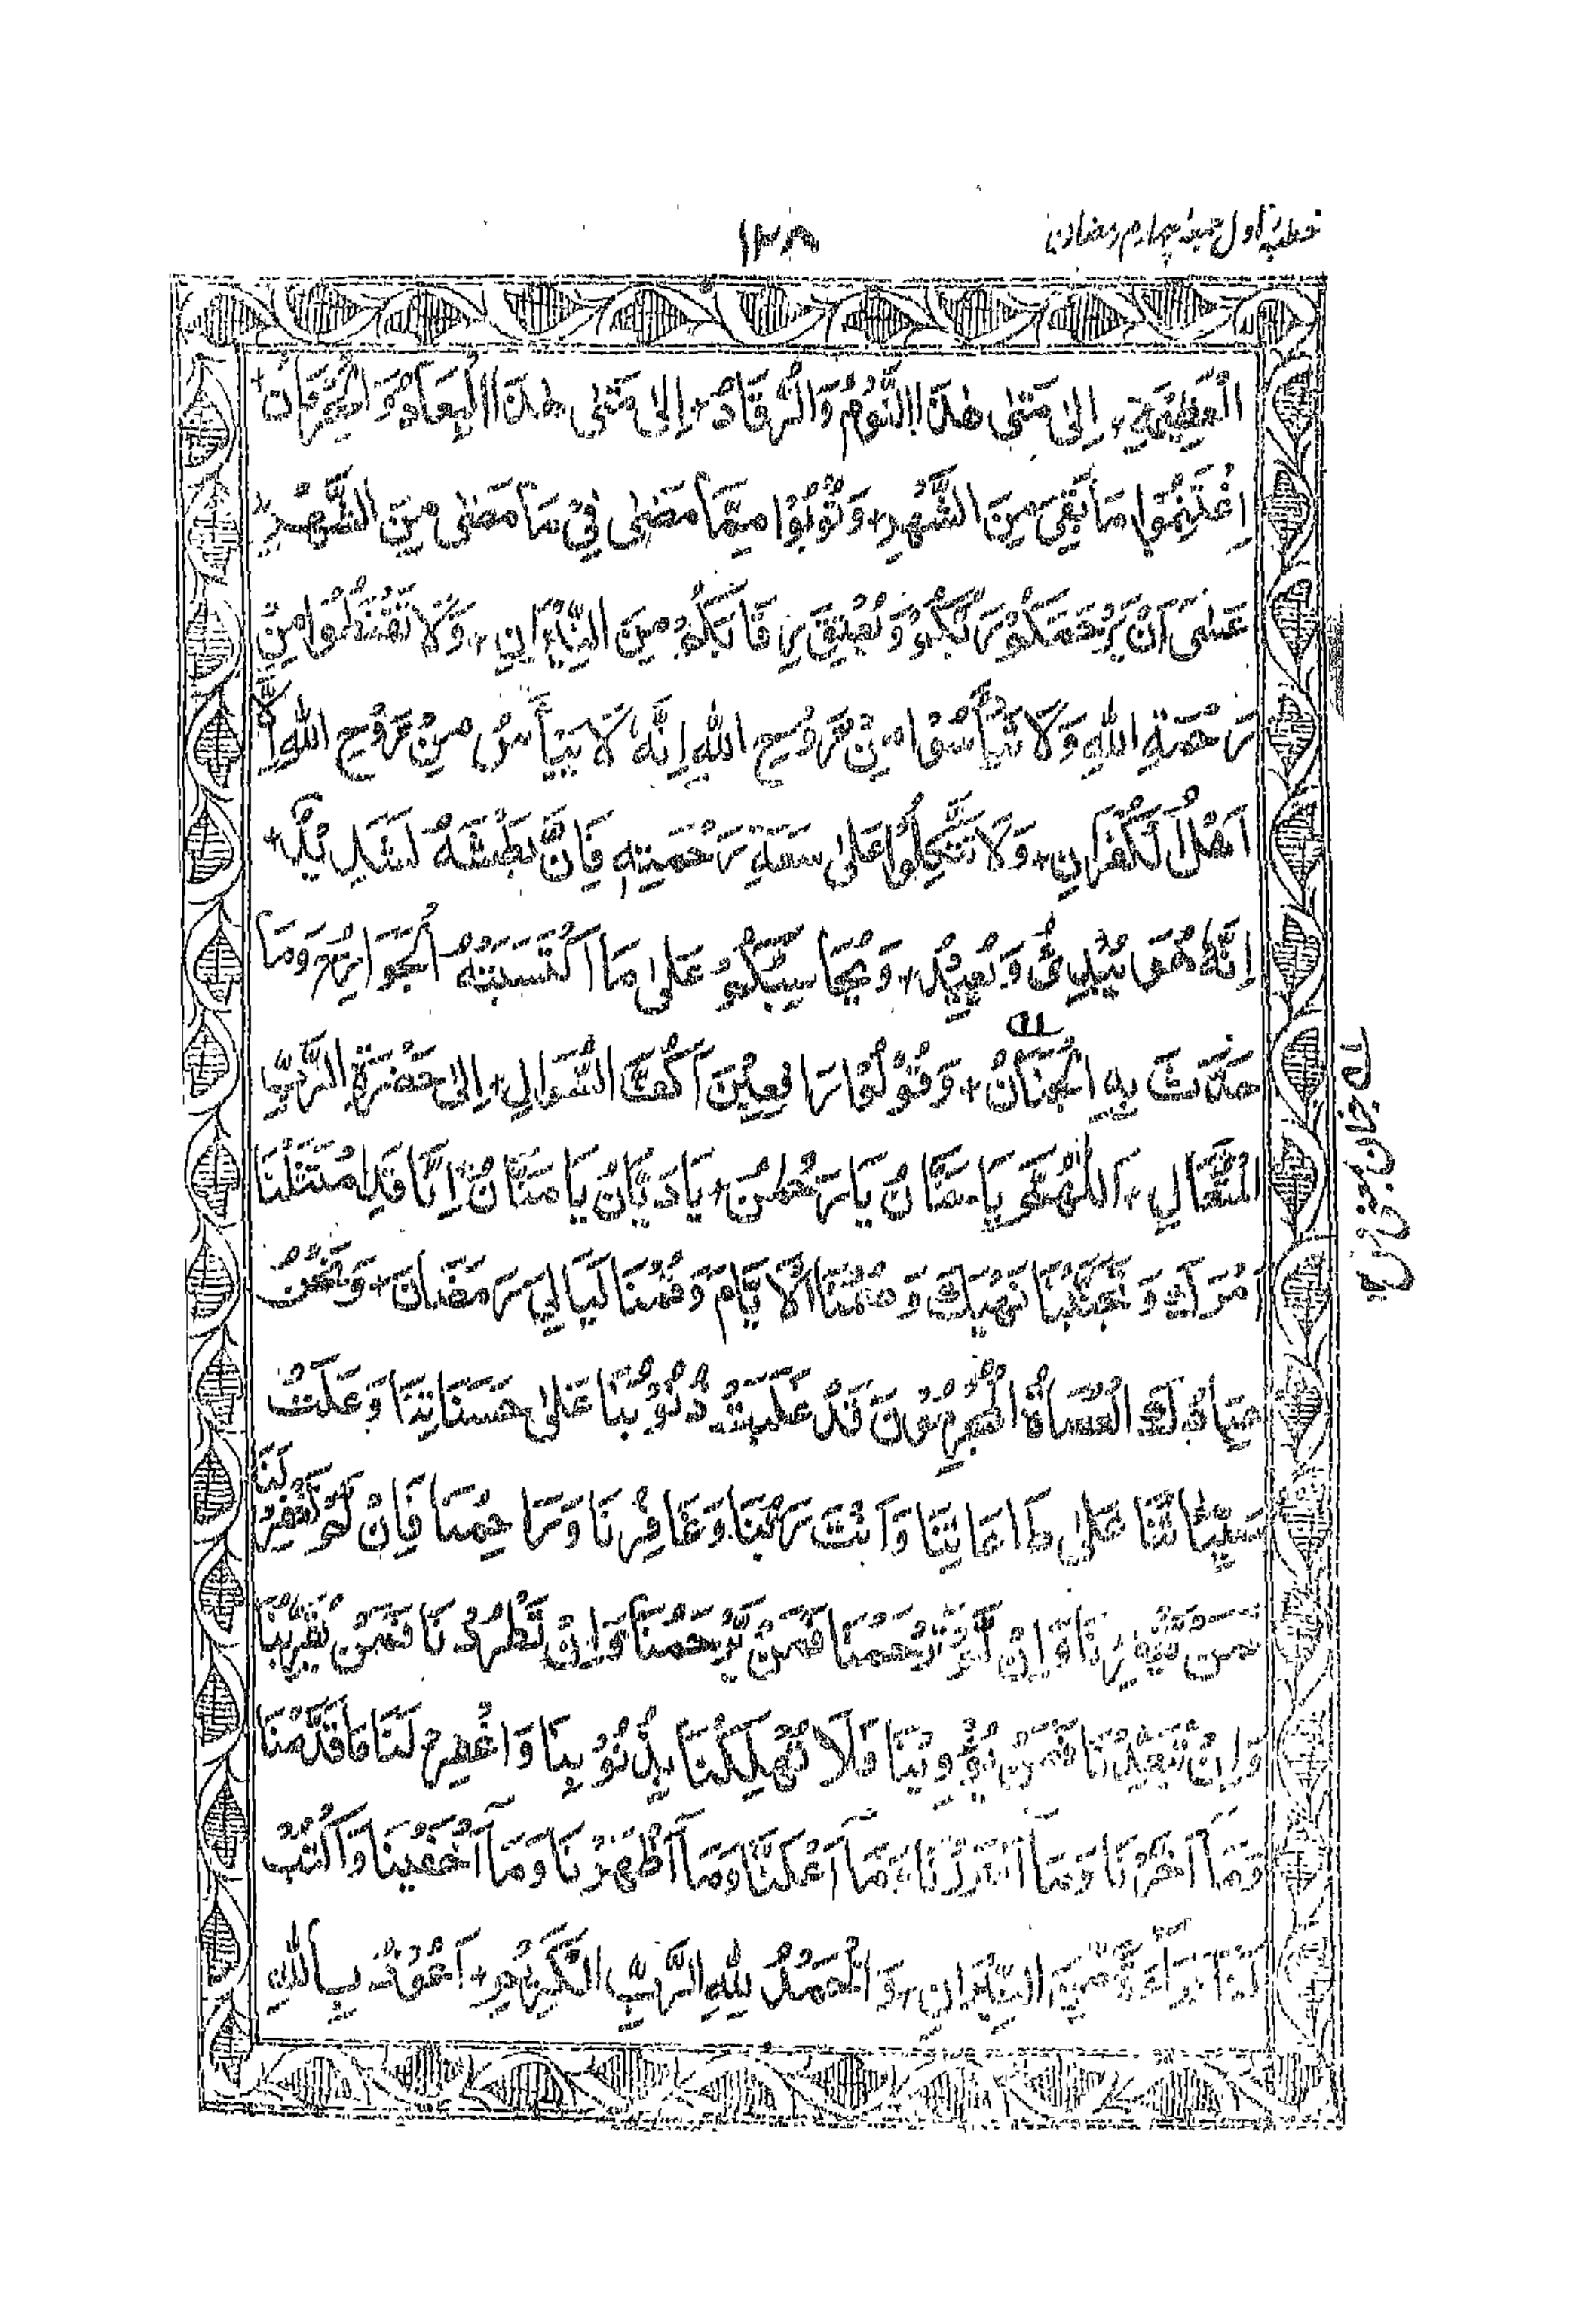 خطبۂ اول جمعۂ چہارم رمضان
۱۳۸
الْعَظِيْمَةِ، اِلٰى مَتٰى هٰذَا النَّوْمُ وَالرُّقَادُ، اِلٰى مَتٰى هٰذَا الْبِعَادُ وَالْحِرْمَانُ
اِغْتَنِمُوْا مَا بَقِيَ مِنَ الشَّهْرِ، وَتُوْبُوْا مِمَّا مَضٰى فِيْ مَا مَضٰى مِنَ الشَّهْرِ
عَسٰى اَنْ يَّرْحَمَكُمْ رَبُّكُمْ وَيُعْتِقَ رِقَابَكُمْ مِنَ النِّيْرَانِ، وَلَا تَقْنَطُوْا مِنْ
رَّحْمَةِ اللّٰهِ وَلَا تَيْأَسُوْا مِنْ رَّوْحِ اللّٰهِ اِنَّهٗ لَا يَيْأَسُ مِنْ رَّوْحِ اللّٰهِ اِلَّا
اَهْلُ الْكُفْرَانِ، وَلَا تَتَّكِلُوْا عَلٰى سَعَةِ رَحْمَتِهٖ فَاِنَّ بَطْشَهٗ لَشَدِيْدٌ
اِنَّهٗ هُوَ يُبْدِئُ وَيُعِيْدُ، وَيُحَاسِبُكُمْ عَلٰى مَا اكْتَسَبَتْهُ الْجَوَارِحُ وَمَا
حَدَّثَ بِهِ الْجَنَانُ، وَقُوْلُوْا رَافِعِيْنَ اَكُفَّ السُّوَالِ، اِلٰى حَضْرَةِ الرَّبِّ
الْمُتَعَالِ، اَللّٰهُمَّ يَا حَنَّانُ يَا رَحْمٰنُ، يَا دَيَّانُ يَا مَنَّانُ اِنَّا قَدِ امْتَثَلْنَا
اَمْرَكَ وَتَجَنَّبْنَا نَهْيَكَ وَصُمْنَا الْاَيَّامَ وَقُمْنَا لَيَالِيَ رَمَضَانَ، وَنَحْنُ
عِبَادُكَ الْعُصَاةُ الْمُجْرِمُوْنَ قَدْ غَلَبَتْ ذُنُوْبُنَا عَلٰى حَسَنَاتِنَا وَعَلَتْ
سَيِّئَاتُنَا عَلٰى طَاعَاتِنَا وَاَنْتَ رَبُّنَا وَغَافِرُنَا وَرَاحِمُنَا فَاِنْ لَّمْ تَغْفِرْ لَنَا
فَمَنْ يَّغْفِرُنَا وَاِنْ لَّمْ تَرْحَمْنَا فَمَنْ يَّرْحَمُنَا وَاِنْ تَطْرُدْنَا فَمَنْ يُّقَرِّبُنَا
وَاِنْ تُبْعِدْنَا فَمَنْ يُّؤْوِيْنَا فَلَا تُهْلِكْنَا بِذُنُوْبِنَا وَاغْفِرْ لَنَا مَا قَدَّمْنَا
وَمَا اَخَّرْنَا وَمَا اَسْرَرْنَا وَمَا اَعْلَنَّا وَمَا اَظْهَرْنَا وَمَا اَخْفَيْنَا وَاكْتُبْ
لَنَا بَرَاءَةً مِّنَ النِّيْرَانِ، وَالْحَمْدُ لِلّٰهِ الرَّبِّ الْكَرِيْمِ، اَعُوْذُ بِاللّٰهِ